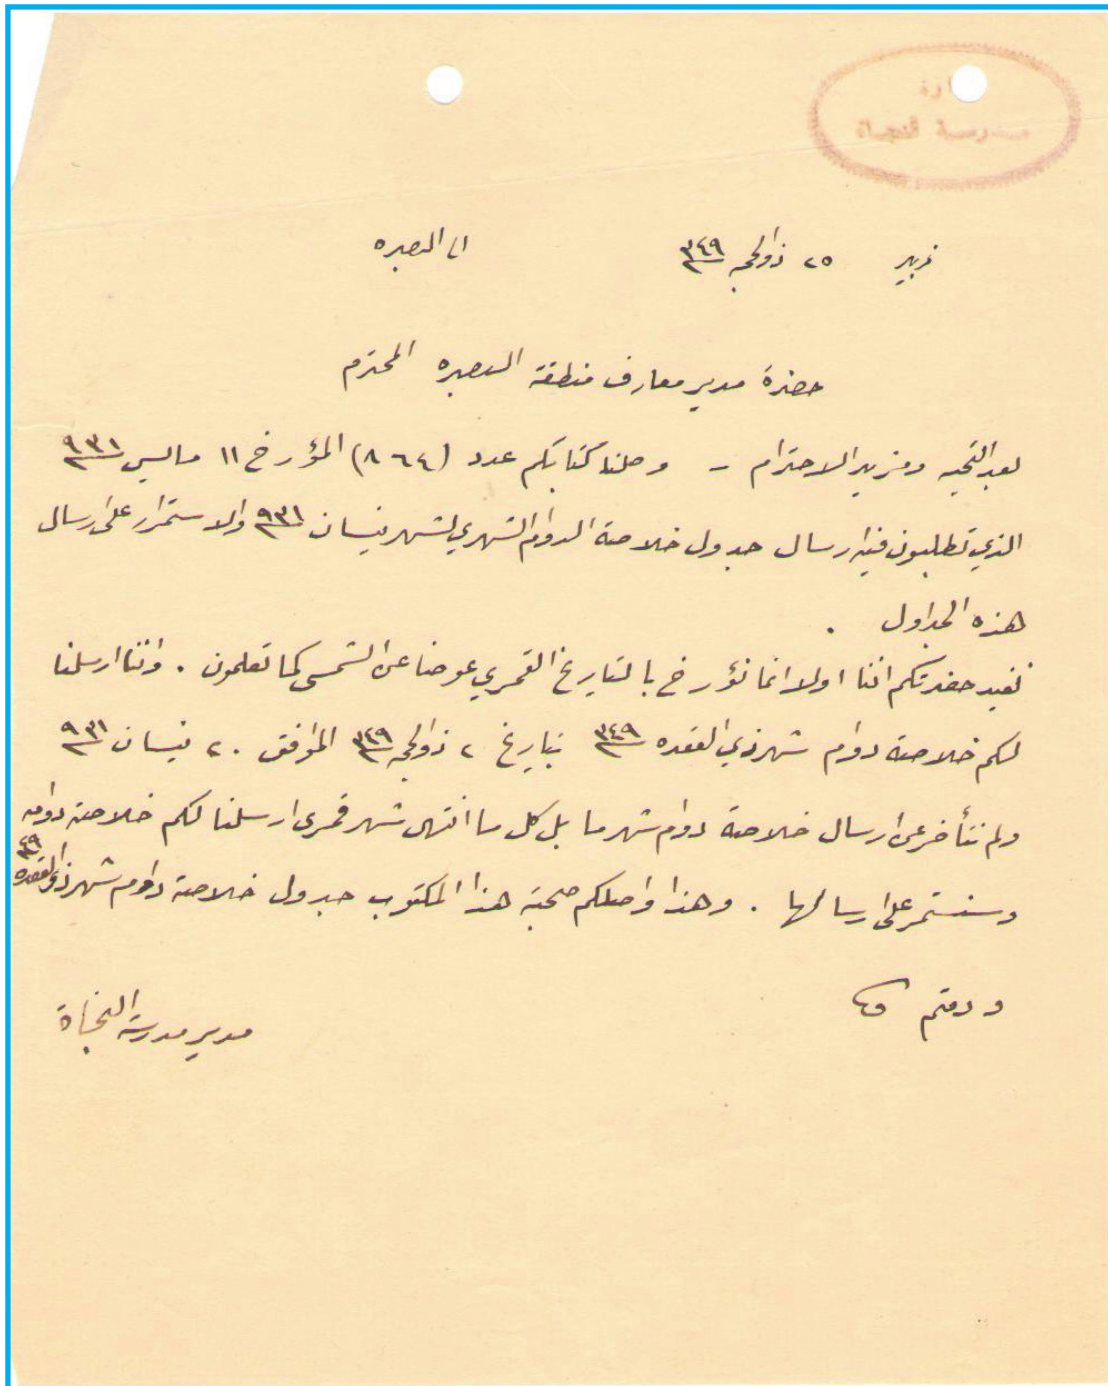 ادارة
مدرسة النجاة
زبير ٢٥ ذوالحجه ٣٤٩ الى البصره
حضرة مدير معارف منطقة البصره المحترم
بعد التحيه ومزيد الاحترام - وصلنا كتابكم عدد (٨٦٤) المؤرخ ١١ مايس ٩٣١
الذي تطلبون فيه ارسال جدول خلاصة الدوام الشهري لشهر نيسان ٩٣١ والاستمرار على ارسال
هذه الجداول .
نفيد حضرتكم اننا اولا انما نؤرخ بالتاريخ القمري عوضا عن الشمسي كما تعلمون . واننا ارسلنا
لكم خلاصة دوام شهر ذي القعده ٣٤٩ بتاريخ ٢ ذوالحجه ٣٤٩ الموافق ٢٠ نيسان ٩٣١
ولم نتأخر عن ارسال خلاصة دوام شهر ما بل كل ما انتهى شهر قمري ارسلنا لكم خلاصة دوامه
وسنستمر على ارسالها . وهذا واصلكم صحبة هذا المكتوب جدول خلاصة دوام شهر ذي القعده ٤٩
ودمتم
مدير مدرسة النجاة